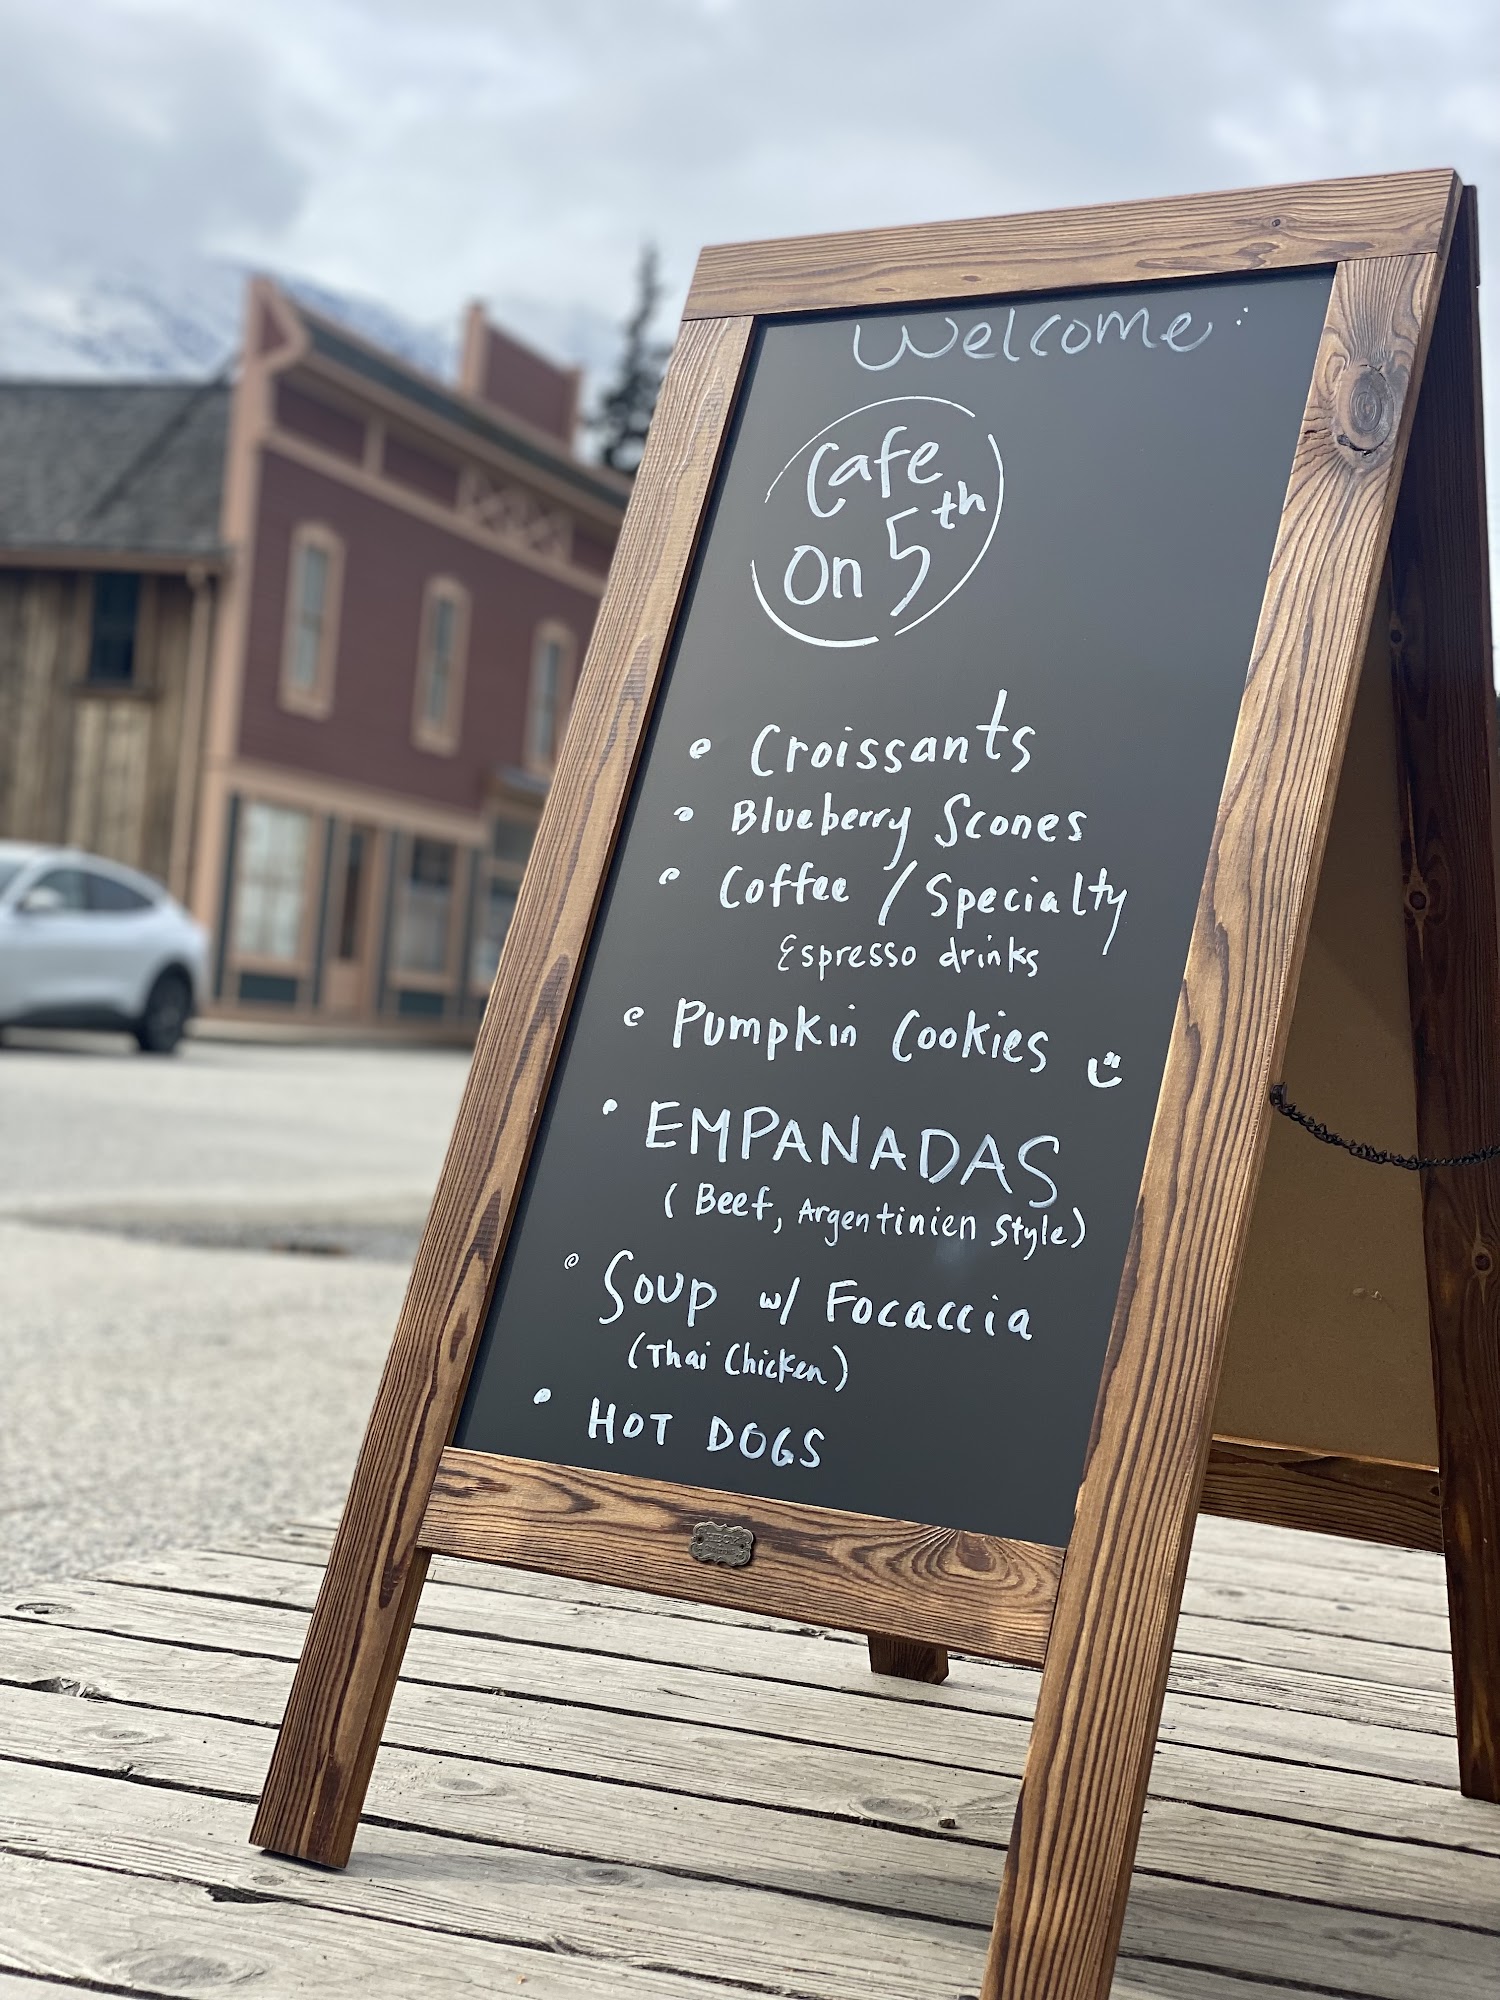 Welcome:
Cafe
On 5th
Croissants
Blueberry Scones
Coffee / Specialty
Espresso drinks
Pumpkin Cookies
EMPANADAS
(Beef, Argentinien Style)
Soup w/ Focaccia
(Thai Chicken)
HOT DOGS